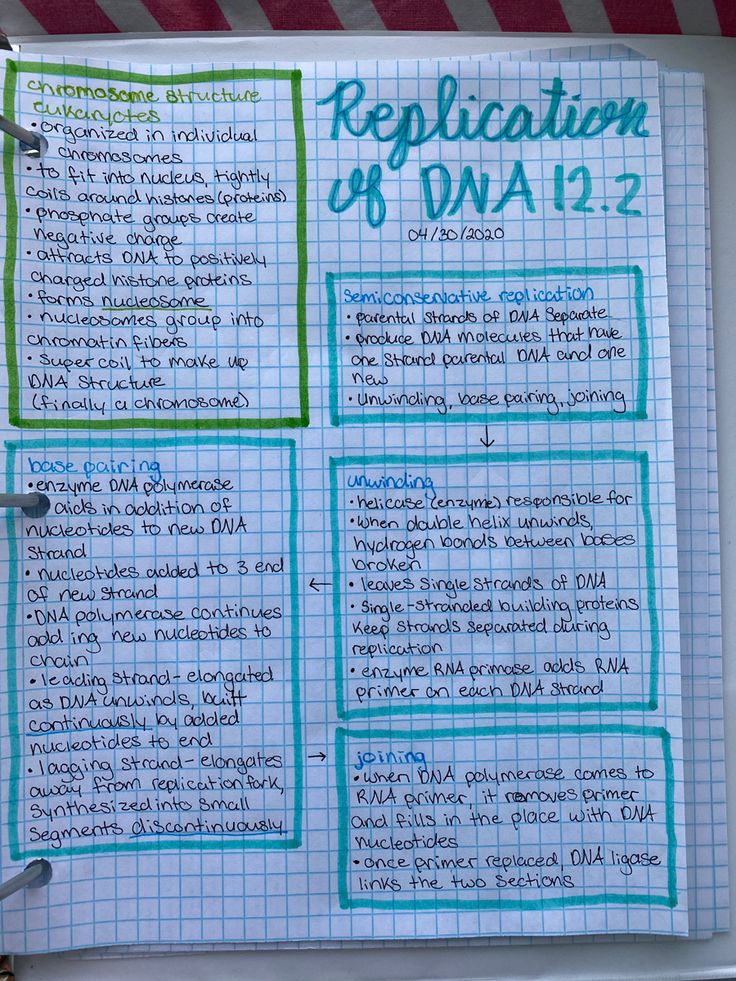 Replication
of DNA 12.2
04/30/2020
chromosome structure
eukaryotes
• organized in individual
chromosomes
• to fit into nucleus, tightly
coils around histones (proteins)
• phosphate groups create
negative charge
• attracts DNA to positively
charged histone proteins
• forms nucleosome
• nucleosomes group into
chromatin fibers
• super coil to make up
DNA structure
(finally a chromosome)
semiconservative replication
• parental strands of DNA separate
• produce DNA molecules that have
one strand parental DNA and one
new
• unwinding, base pairing, joining
↓
unwinding
• helicase (enzyme) responsible for
• when double helix unwinds,
hydrogen bonds between bases
broken
• leaves single strands of DNA
• single-stranded building proteins
keep strands separated during
replication
• enzyme RNA primase adds RNA
primer on each DNA strand
←
base pairing
• enzyme DNA polymerase
aids in addition of
nucleotides to new DNA
strand
• nucleotides added to 3 end
of new strand
• DNA polymerase continues
adding new nucleotides to
chain
• leading strand - elongated
as DNA unwinds, built
continuously by added
nucleotides to end
• lagging strand - elongates
away from replication fork,
synthesized into small
segments discontinuously
→
joining
• when DNA polymerase comes to
RNA primer, it removes primer
and fills in the place with DNA
nucleotides
• once primer replaced, DNA ligase
links the two sections